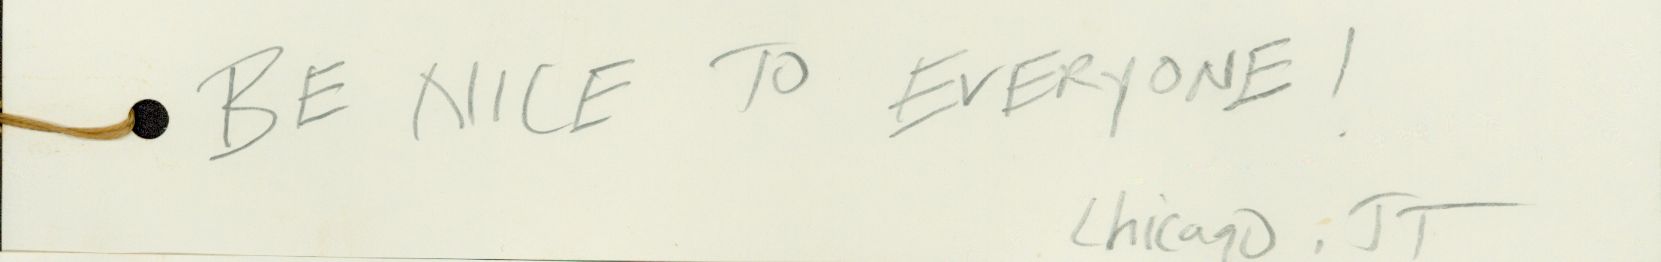 BE NICE TO EVERYONE!
Chicago. JT